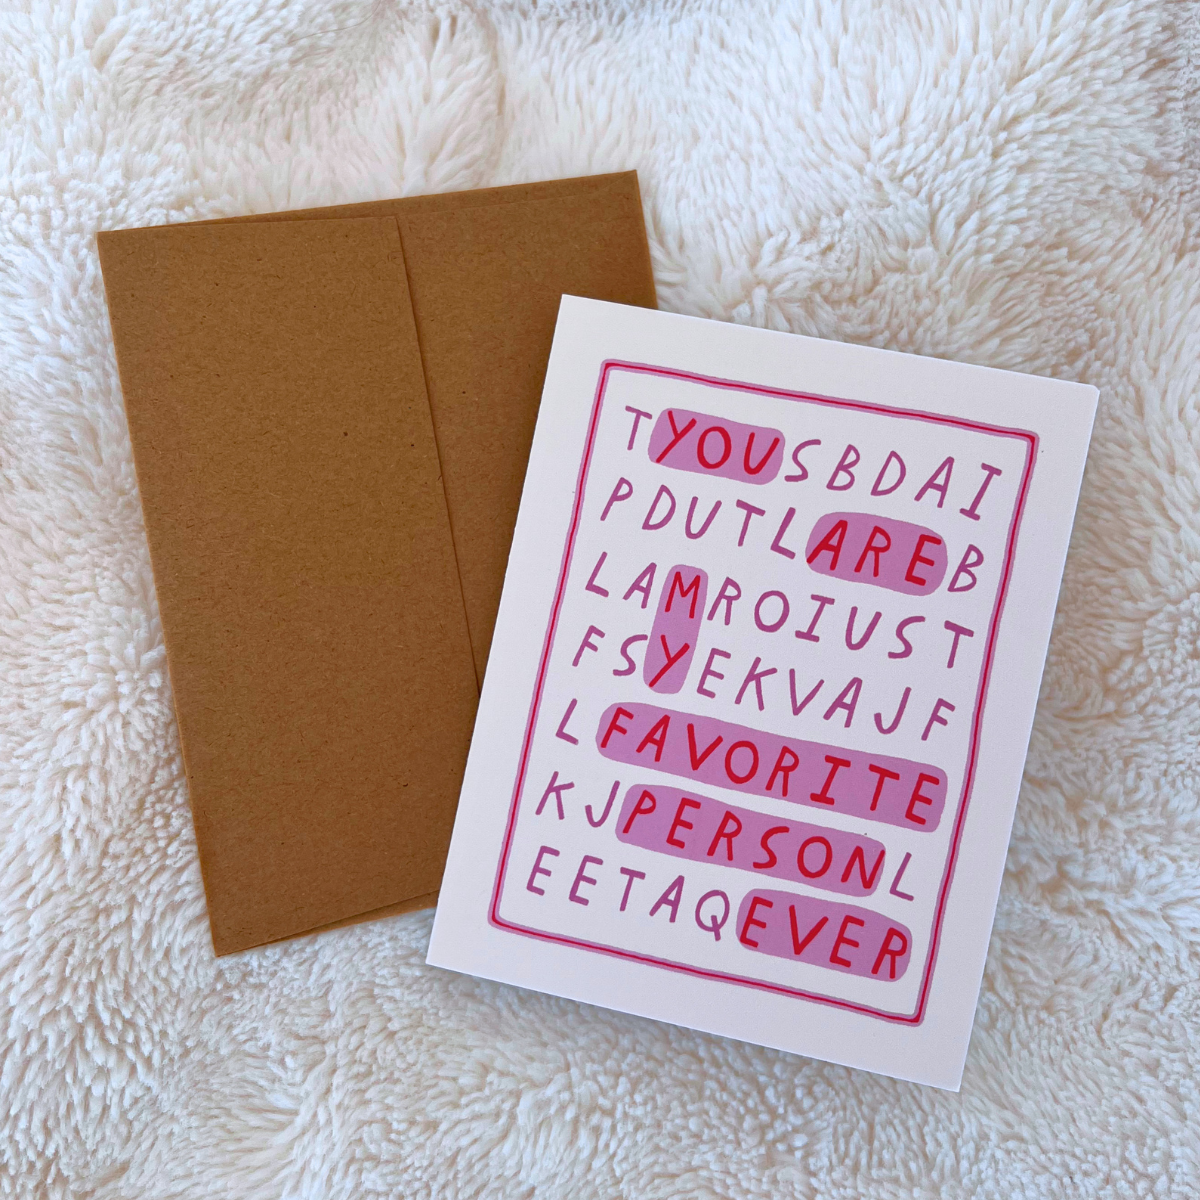 TYOUSBDAI
PDUTLAREB
LAMROIUST
FSYEKVAJF
LFAVORITE
KJPERSONL
EETAQEVER